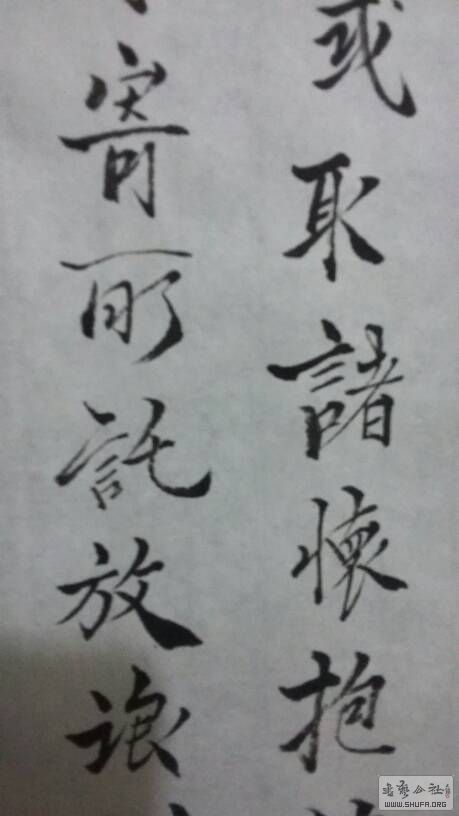 或取諸懷抱
寄所託放浪
书艺公社
WWW.SHUFA.ORG